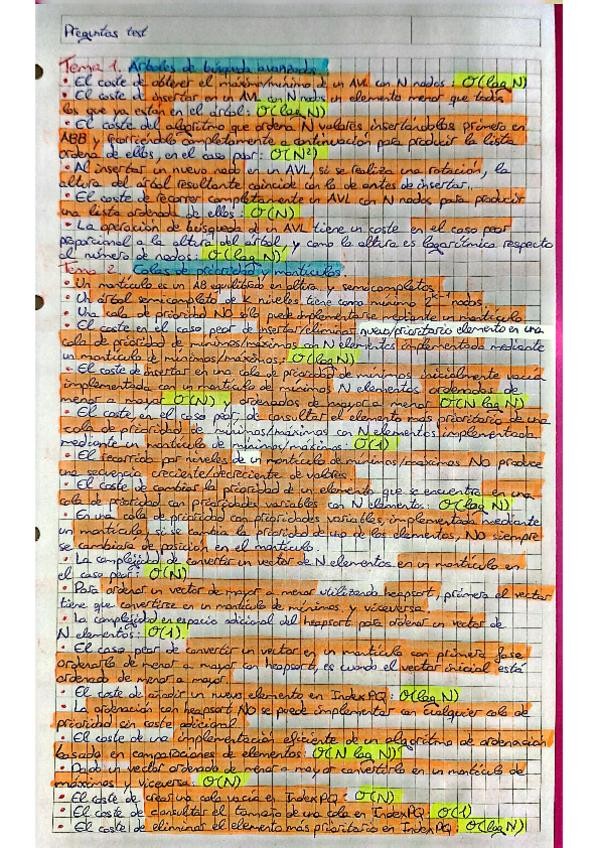 Preguntas test
Tema 1. Árboles de búsqueda avanzados
• El coste de obtener el máximo/mínimo de un AVL con N nodos: O(log N)
• El coste de insertar en un AVL con N nodos un elemento menor que todos
los que ya están en el árbol: O(log N)
• El coste del algoritmo que ordena N valores insertándolos primero en
ABB y recorriéndolo completamente a continuación para producir la lista
ordenada de ellos, en el caso peor: O(N²)
• Al insertar un nuevo nodo en un AVL, si se realiza una rotación, la
altura del árbol resultante coincide con la de antes de insertar.
• El coste de recorrer completamente un AVL con N nodos para producir
una lista ordenada de ellos: O(N)
• La operación de búsqueda de un AVL tiene un coste en el caso peor
proporcional a la altura del árbol, y como la altura es logarítmica respecto
al número de nodos: O(log N)
Tema 2. Colas de prioridad y montículos
• Un montículo es un AB equilibrado en altura y semicompleto.
• Un árbol semicompleto de K niveles tiene como mínimo 2^k-1 nodos.
• Una cola de prioridad NO sólo puede implementarse mediante un montículo
• El coste en el caso peor de insertar/eliminar nuevo/prioritario elemento en una
cola de prioridad de mínimos/máximos con N elementos implementada mediante
un montículo de mínimos/máximos: O(log N)
• El coste de insertar en una cola de prioridad de mínimos inicialmente vacía
implementada con un montículo de mínimos N elementos ordenados de
menor a mayor O(N) ordenados de mayor a menor O(N log N)
• El coste en el caso peor de consultar el elemento más prioritario de una
cola de prioridad de mínimos/máximos con N elementos implementada
mediante un montículo de mínimos/máximos: O(1)
• El recorrido por niveles de un montículo de mínimos/máximos NO produce
una secuencia creciente/decreciente de valores.
• El coste de cambiar la prioridad de un elemento que se encuentra en una
cola de prioridad con prioridades variables con N elementos: O(log N)
• En una cola de prioridad con prioridades variables, implementada mediante
un montículo, si se cambia la prioridad de uno de los elementos, NO siempre
se cambiará de posición en el montículo.
• La complejidad de convertir un vector de N elementos en un montículo en
el caso peor: O(N)
• Para ordenar un vector de mayor a menor utilizando heapsort, primero el vector
tiene que convertirse en un montículo de mínimos. y viceversa
• La complejidad en espacio adicional del heapsort para ordenar un vector de
N elementos: O(1)
• El caso peor de convertir un vector en un montículo con primera fase
ordenarlo de menor a mayor con heapsort, es cuando el vector inicial está
ordenado de menor a mayor.
• El coste de añadir un nuevo elemento en IndexPQ: O(log N)
• La ordenación con heapsort NO se puede implementar con cualquier cola de
prioridad sin coste adicional
• El coste de una implementación eficiente de un algoritmo de ordenación
basado en comparaciones de elementos: O(N log N)
• Dado un vector ordenado de menor a mayor convertirlo en un montículo de
máximos y viceversa: O(N)
• El coste de crear una cola vacía en IndexPQ: O(N)
• El coste de consultar el tamaño de una cola en IndexPQ: O(1)
• El coste de eliminar el elemento más prioritario en IndexPQ: O(log N)